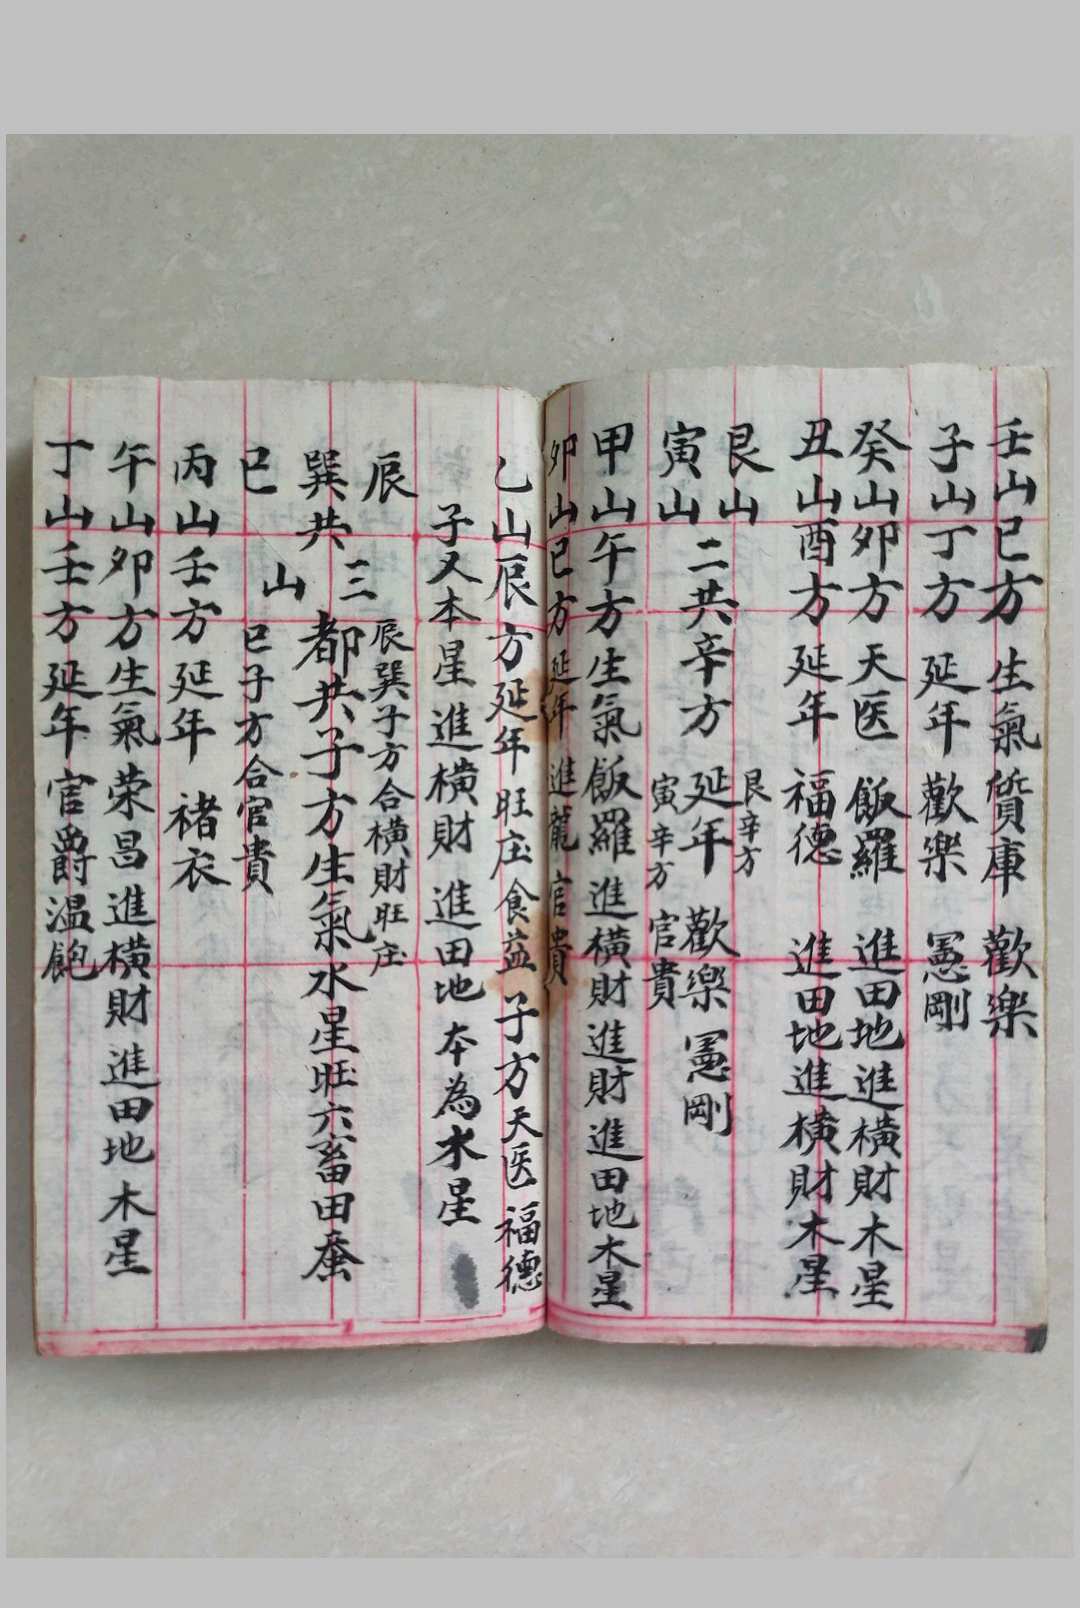 壬山巳方 生氣 質庫 歡樂
子山丁方 延年 歡樂 憲剛
癸山卯方 天医 飯羅 進田地進橫財木星
丑山酉方 延年 福德 進田地進橫財木星
艮山
寅山
二共辛方 延年 歡樂 憲剛
艮辛方
寅辛方 官貴
甲山午方生氣飯羅進橫財進財進田地木星
卯山巳方延年 進龍 官貴
乙山辰方延年旺庄食益子方天医福德
子又本星進橫財進田地本為水星
辰
巽共三
巳 山
都共子方生氣水星旺六畜田蚕
辰巽子方合橫財旺庄
巳子方合官貴
丙山壬方延年 褚衣
午山卯方生氣榮昌進橫財進田地木星
丁山壬方延年官爵溫飽